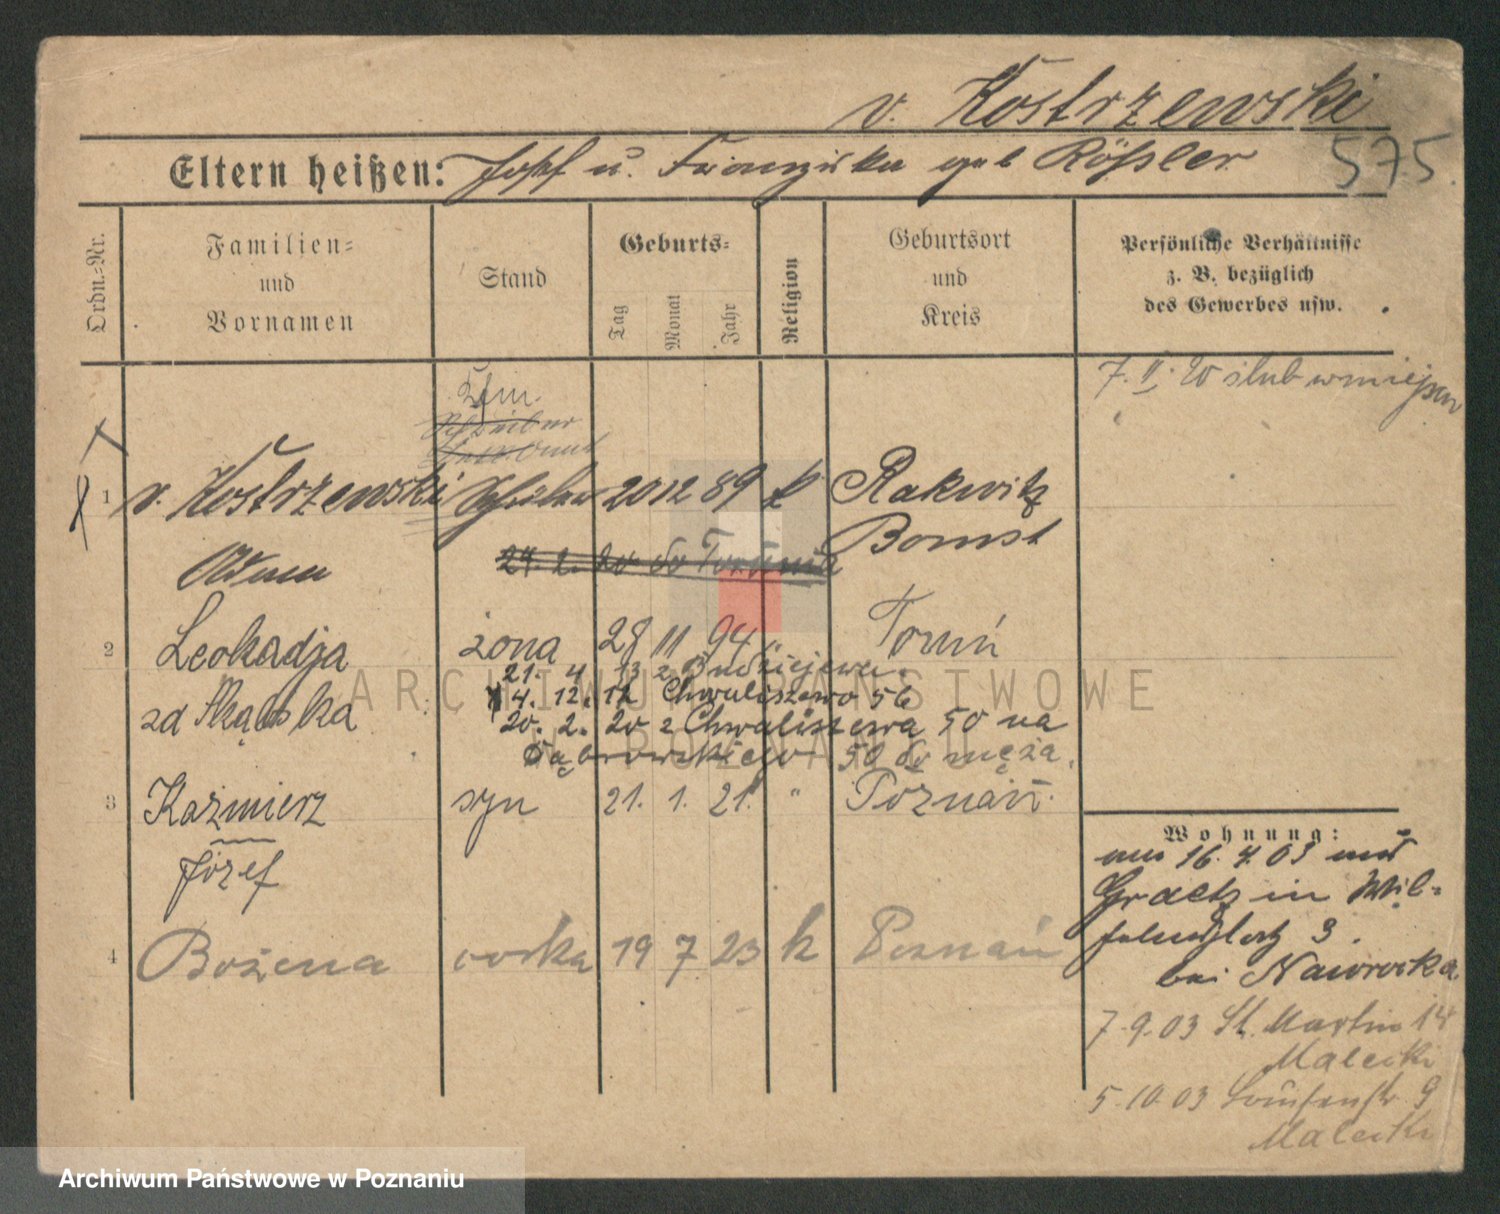 v. Kostrzewski
Eltern heißen: Josef u. Franziska geb Rößler 575
Ordn.=Nr.
Familien=
und
Vornamen
Stand
Geburts=
Tag
Monat
Jahr
Religion
Geburtsort
und
Kreis
Persönliche Verhältnisse
z. B. bezüglich
des Gewerbes usw.
7. II. 20 ślub w miejscu
1 v. Kostrzewski Schüler 20 12 89 k Rakwitz
Bomst
Adam
24. 2. 20 do Torunia
2 Leokadja żona 28 11 94 " Toruń
21. 4 13 z
zd Skąpska 4. 12. 12 Chwaliszewo 56
20. 2. 20 z Chwaliszewa 50 na
Dąbrowskiego 50 do męża.
3 Kazmierz syn 21. 1. 21. " Poznań.
Józef
4 Bożena corka 19 7 23 k Poznań
Wohnung:
am 16. 4. 03 aus
Graetz in Wil-
3.
bei Nawrocka.
7. 9. 03 St. Martin 14
Malecki
5. 10. 03 Louisenstr 9
Malecki
ARCHIWUM PAŃSTWOWE
W POZNANIU
Archiwum Państwowe w Poznaniu